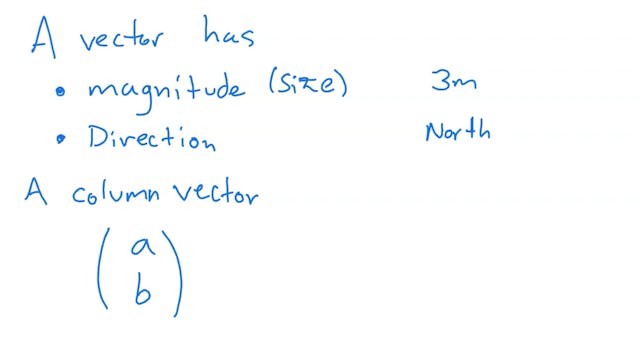 A vector has
• magnitude (size) 3m
• Direction North
A column vector
(a
b)